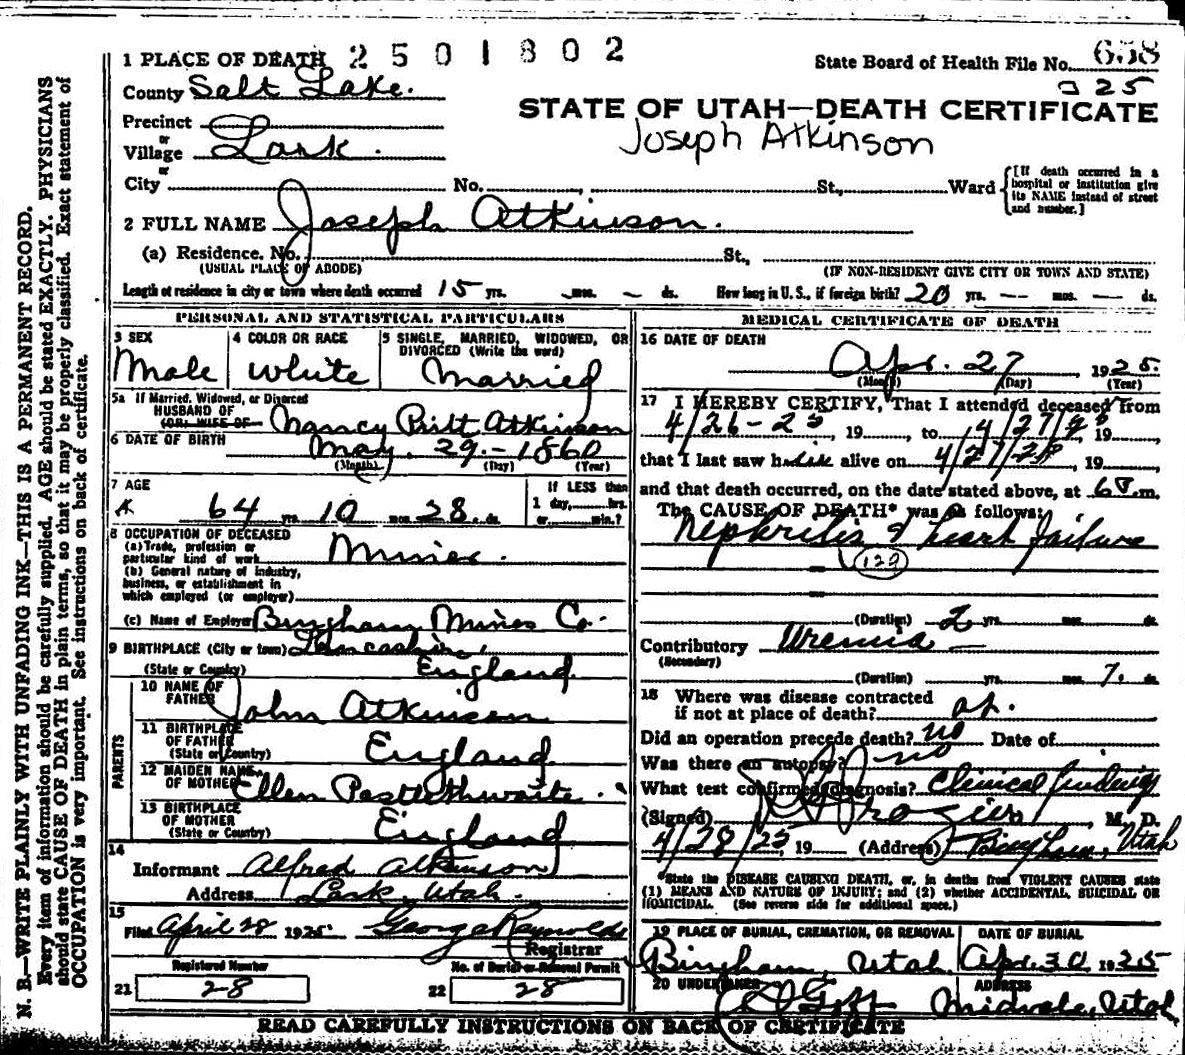 N. B.—WRITE PLAINLY WITH UNFADING INK—THIS IS A PERMANENT RECORD.
Every item of information should be carefully supplied. AGE should be stated EXACTLY. PHYSICIANS
should state CAUSE OF DEATH in plain terms, so that it may be properly classified. Exact statement of
OCCUPATION is very important. See instructions on back of certificate.
1 PLACE OF DEATH 2501802
State Board of Health File No. 658
325
County Salt Lake.
STATE OF UTAH—DEATH CERTIFICATE
Joseph Atkinson
Precinct
or
Village Lark.
or
City No. , St., Ward
[If death occurred in a
hospital or institution give
its NAME instead of street
and number.]
2 FULL NAME Joseph Atkinson.
(a) Residence. No. St.,
(USUAL PLACE OF ABODE) (IF NON-RESIDENT GIVE CITY OR TOWN AND STATE)
Length of residence in city or town where death occurred 15 yrs. — mos. — ds. How long in U. S., if foreign birth? 20 yrs. — mos. — ds.
PERSONAL AND STATISTICAL PARTICULARS
3 SEX
Male
4 COLOR OR RACE
White
5 SINGLE, MARRIED, WIDOWED, OR
DIVORCED (Write the word)
Married
5a If Married, Widowed, or Divorced
HUSBAND OF
(OR) WIFE OF Nancy Pritt Atkinson
6 DATE OF BIRTH May. 29.-1860
(Month) (Day) (Year)
7 AGE
64 yrs. 10 mos. 28 ds.
If LESS than
1 day, hrs.
or min.?
8 OCCUPATION OF DECEASED
(a) Trade, profession or
particular kind of work Miner.
(b) General nature of industry,
business, or establishment in
which employed (or employer)
(c) Name of Employer Bingham Mines Co.
9 BIRTHPLACE (City or town) Lancashire,
(State or Country) England.
PARENTS
10 NAME OF
FATHER John Atkinson
11 BIRTHPLACE
OF FATHER
(State or Country) England.
12 MAIDEN NAME
OF MOTHER Ellen Postlethwaite.
13 BIRTHPLACE
OF MOTHER
(State or Country) England
14
Informant Alfred Atkinson
Address Lark, Utah.
15
Filed April 28 1925. George Reynolds
Registrar
Registered Number No. of Burial or Removal Permit
21 28 22 28
MEDICAL CERTIFICATE OF DEATH
16 DATE OF DEATH
Apr. 27 1925.
(Month) (Day) (Year)
17 I HEREBY CERTIFY, That I attended deceased from
4/26-25, 19 , to 4/27/25 19 ,
that I last saw him alive on 4/27/25, 19 ,
and that death occurred, on the date stated above, at m.
The CAUSE OF DEATH* was as follows:
Nephritis & heart failure
129
(Duration) 2 yrs. mos. ds.
Contributory Uremia —
(Secondary)
(Duration) yrs. mos. 7. ds.
18 Where was disease contracted
if not at place of death? at.
Did an operation precede death? no Date of
Was there an autopsy? no
What test confirmed diagnosis? Clinical findings
(Signed) , M. D.
4/28/25, 19 (Address) Bingham, Utah
*State the DISEASE CAUSING DEATH, or, in deaths from VIOLENT CAUSES state
(1) MEANS AND NATURE OF INJURY; and (2) whether ACCIDENTAL, SUICIDAL OR
HOMICIDAL. (See reverse side for additional space.)
19 PLACE OF BURIAL, CREMATION, OR REMOVAL
Bingham, Utah.
DATE OF BURIAL
Apr. 30 1925
20 UNDERTAKER
Goff
ADDRESS
Midvale, Utah.
READ CAREFULLY INSTRUCTIONS ON BACK OF CERTIFICATE